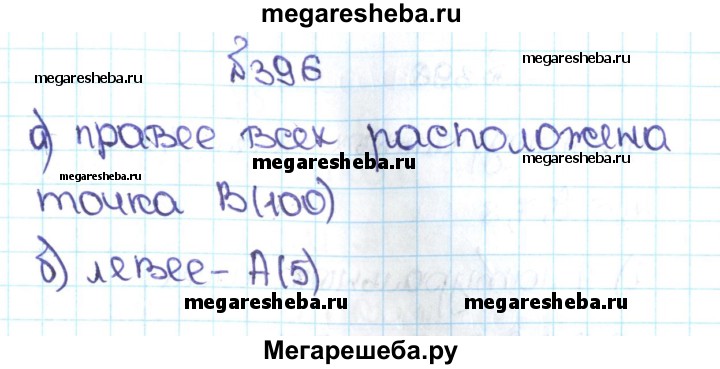 megaresheba.ru
№396
megaresheba.ru
megaresheba.ru
а) правее всех расположена
megaresheba.ru
megaresheba.ru
точка B(100)
б) левее - A(5)
megaresheba.ru
megaresheba.ru
Мегарешеба.ру